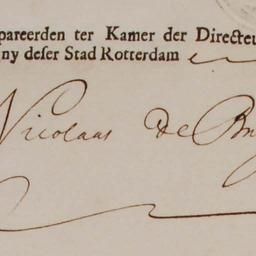 pareerden ter Kamer der Directeu
ny deser Stad Rotterdam en
Nicolaas De Bru